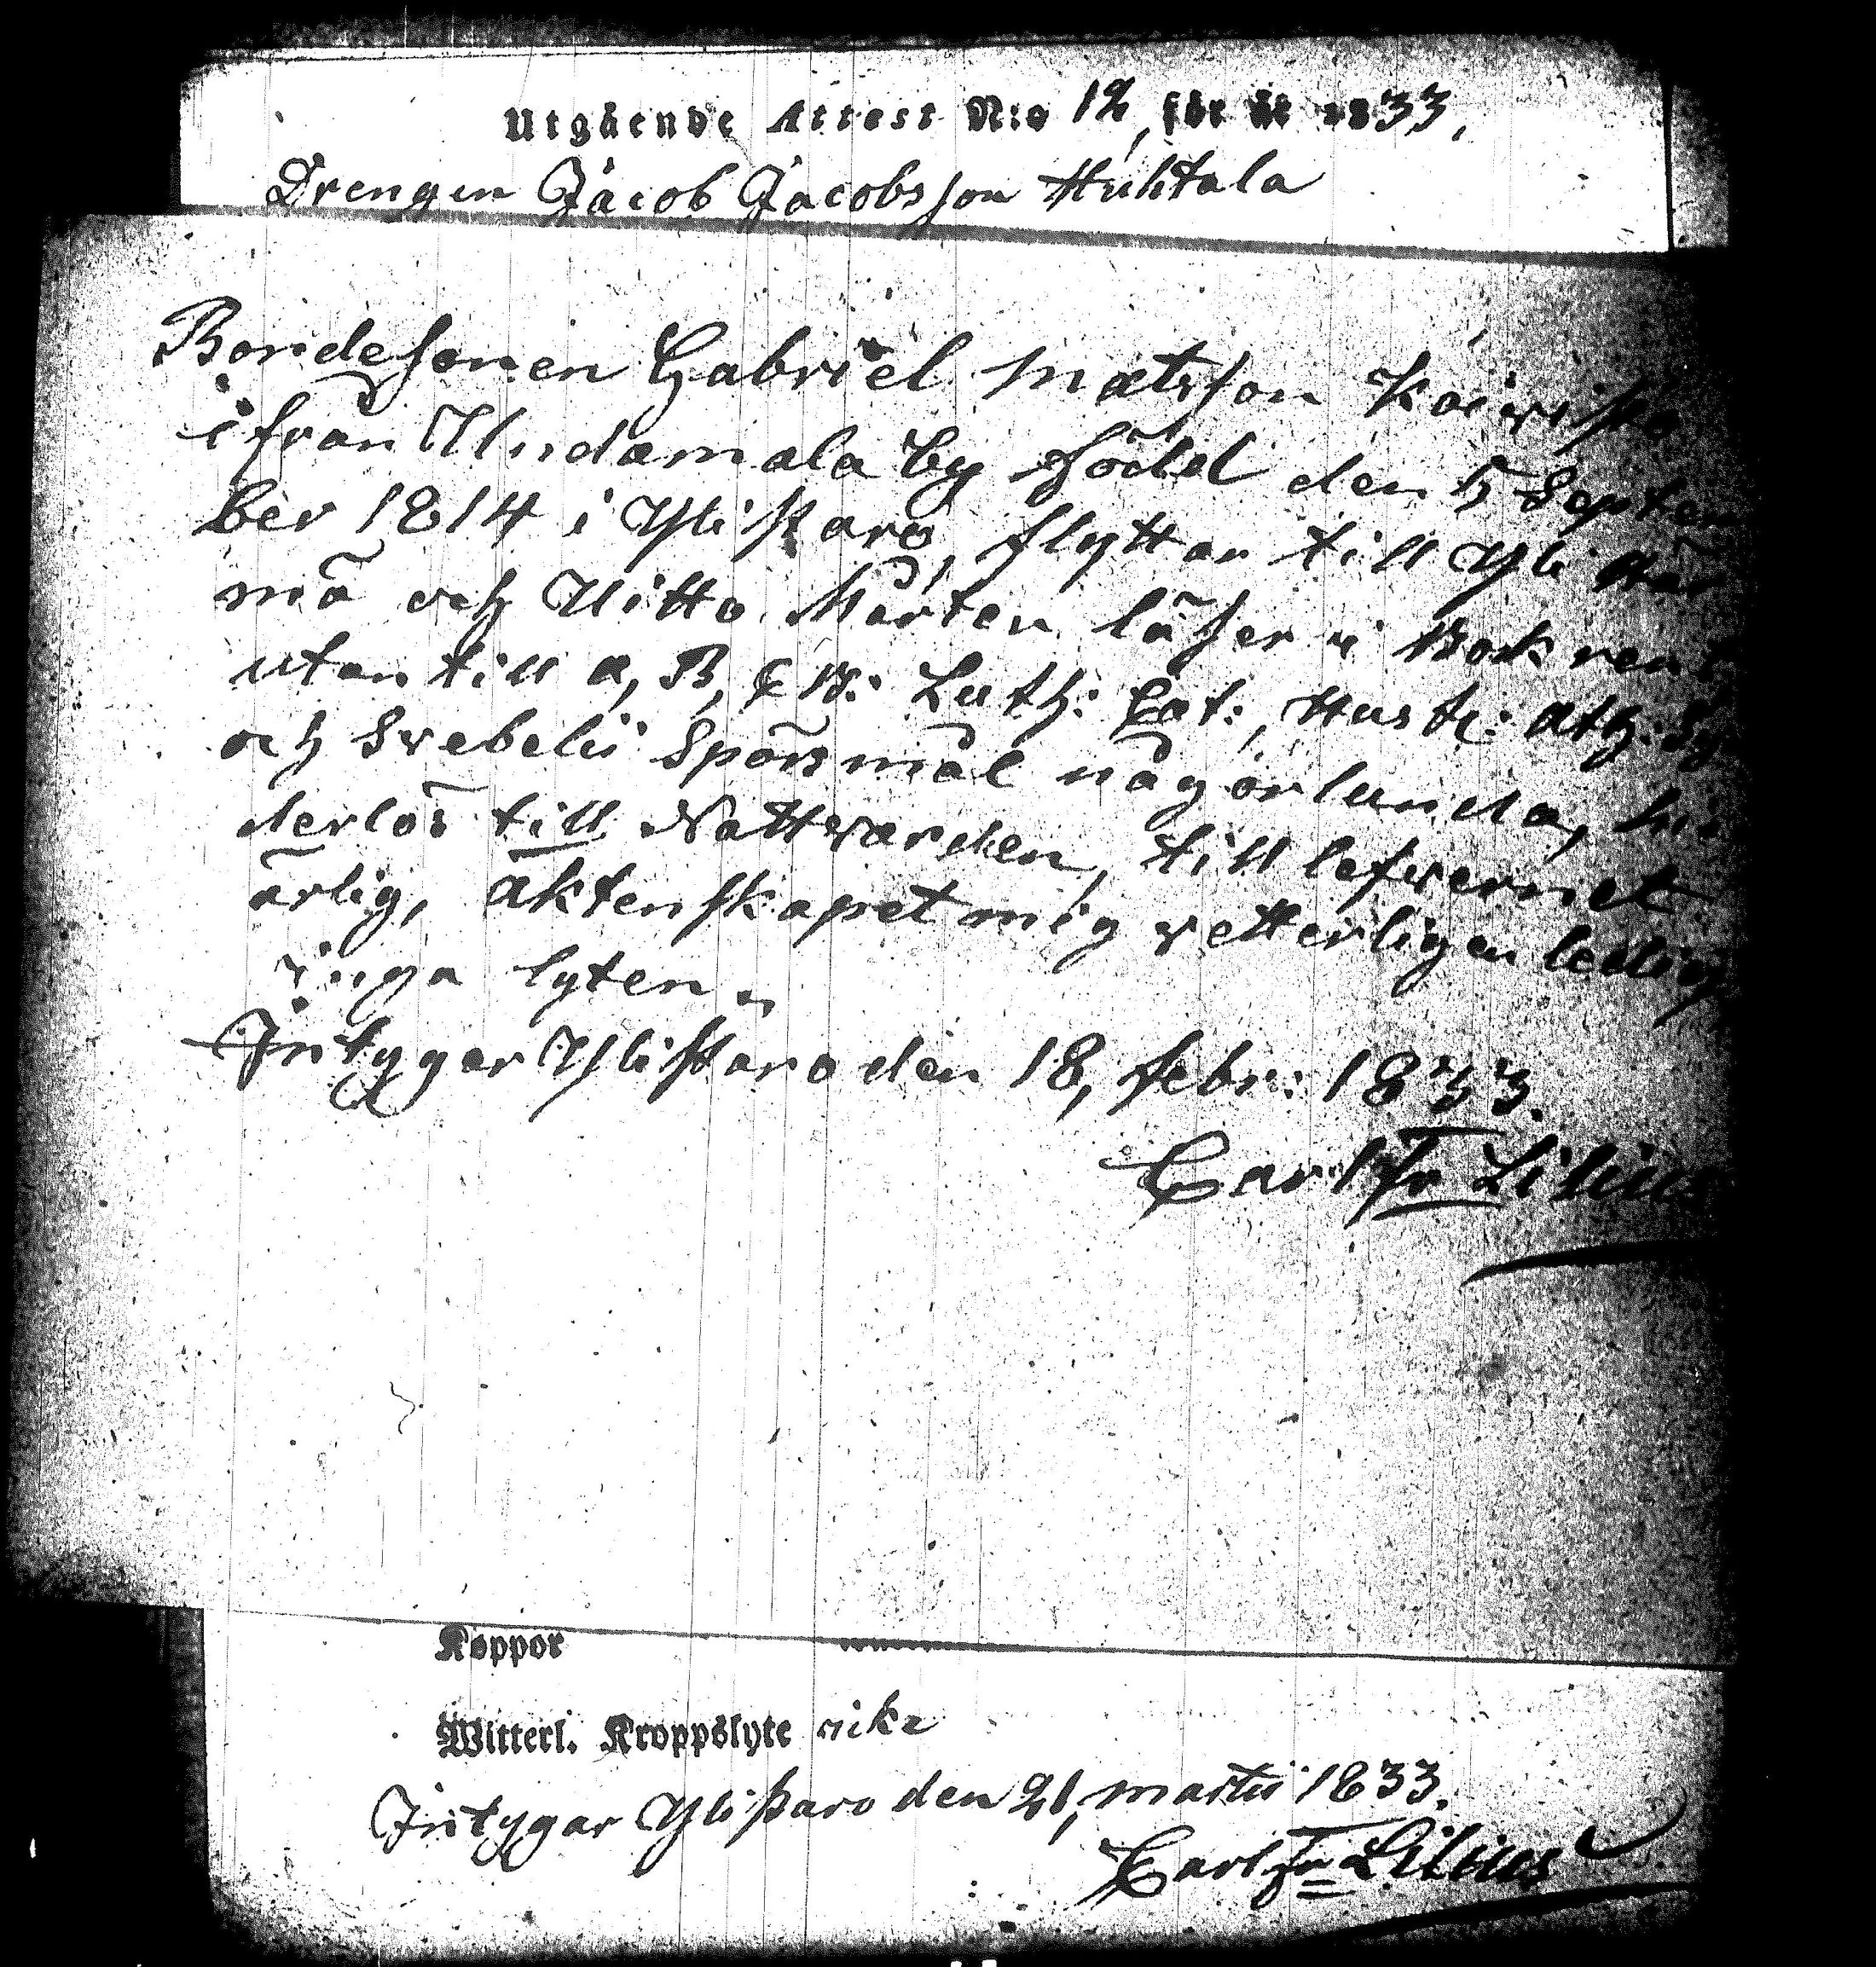 Utgående Attest N:o 12, för år 1833,
Drengen Jacob Jacobsson Huhtala
Bondesonen Gabriel Matsson
ifrån Undamala by född den 5 Septem
ber 1814 i Ylistaro, flyttar till Yli Här
mä och Uitto Mårten läser i Bok rent
utantill A, B, C B: Luth: Cat:, Hust: Ath: Sy
och Svebelii Spörsmål någorlunda, hin
derlös till Nattvarden, till lefvernet
ärlig, äktenskapet mig vetterligen ledig
inga lyten
Intygar Ylistaro den 18, febr: 1833.
Carl Fr Lilius
Koppor
Witterl. Kroppslyte icke
Intygar Ylistaro den 21, martii 1833.
Carl Fr Lilius